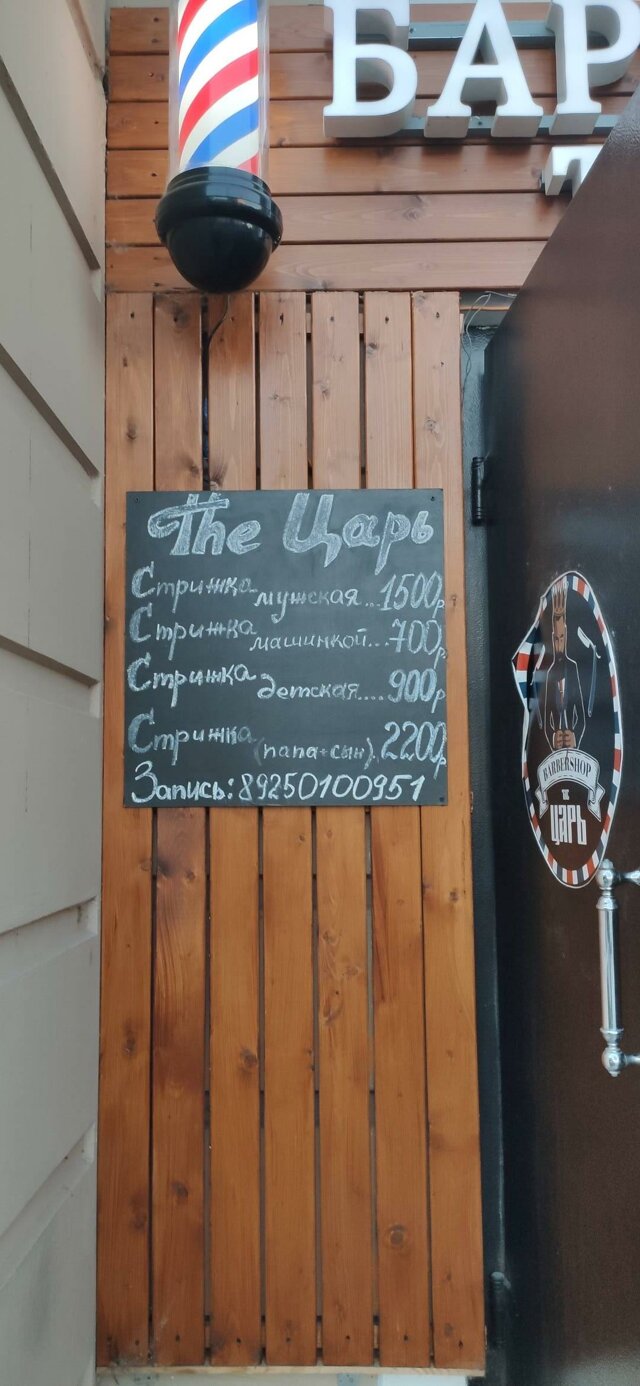 БАР
The Царь
Стрижка мужская...1500р
Стрижка машинкой...700р
Стрижка детская....900р
Стрижка (папа+сын).2200р
Запись: 89250100951
BARBERSHOP
THE
ЦАРЬ